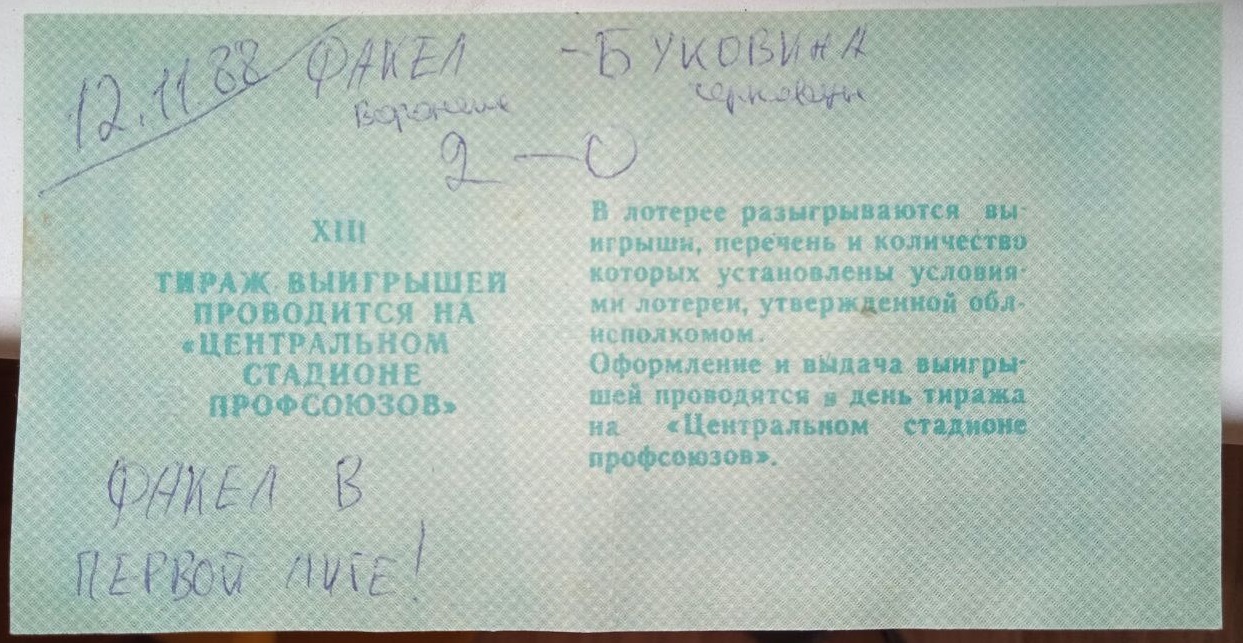 12.11.88 ФАКЕЛ - БУКОВИНА
Воронеж черновцы
2 - 0
XIII
ТИРАЖ ВЫИГРЫШЕЙ
ПРОВОДИТСЯ НА
«ЦЕНТРАЛЬНОМ
СТАДИОНЕ
ПРОФСОЮЗОВ»
В лотерее разыгрываются вы-
игрыши, перечень и количество
которых установлены условия-
ми лотереи, утвержденной обл-
исполкомом.
Оформление и выдача выигры-
шей проводятся в день тиража
на «Центральном стадионе
профсоюзов».
ФАКЕЛ В
ПЕРВОЙ ЛИГЕ!